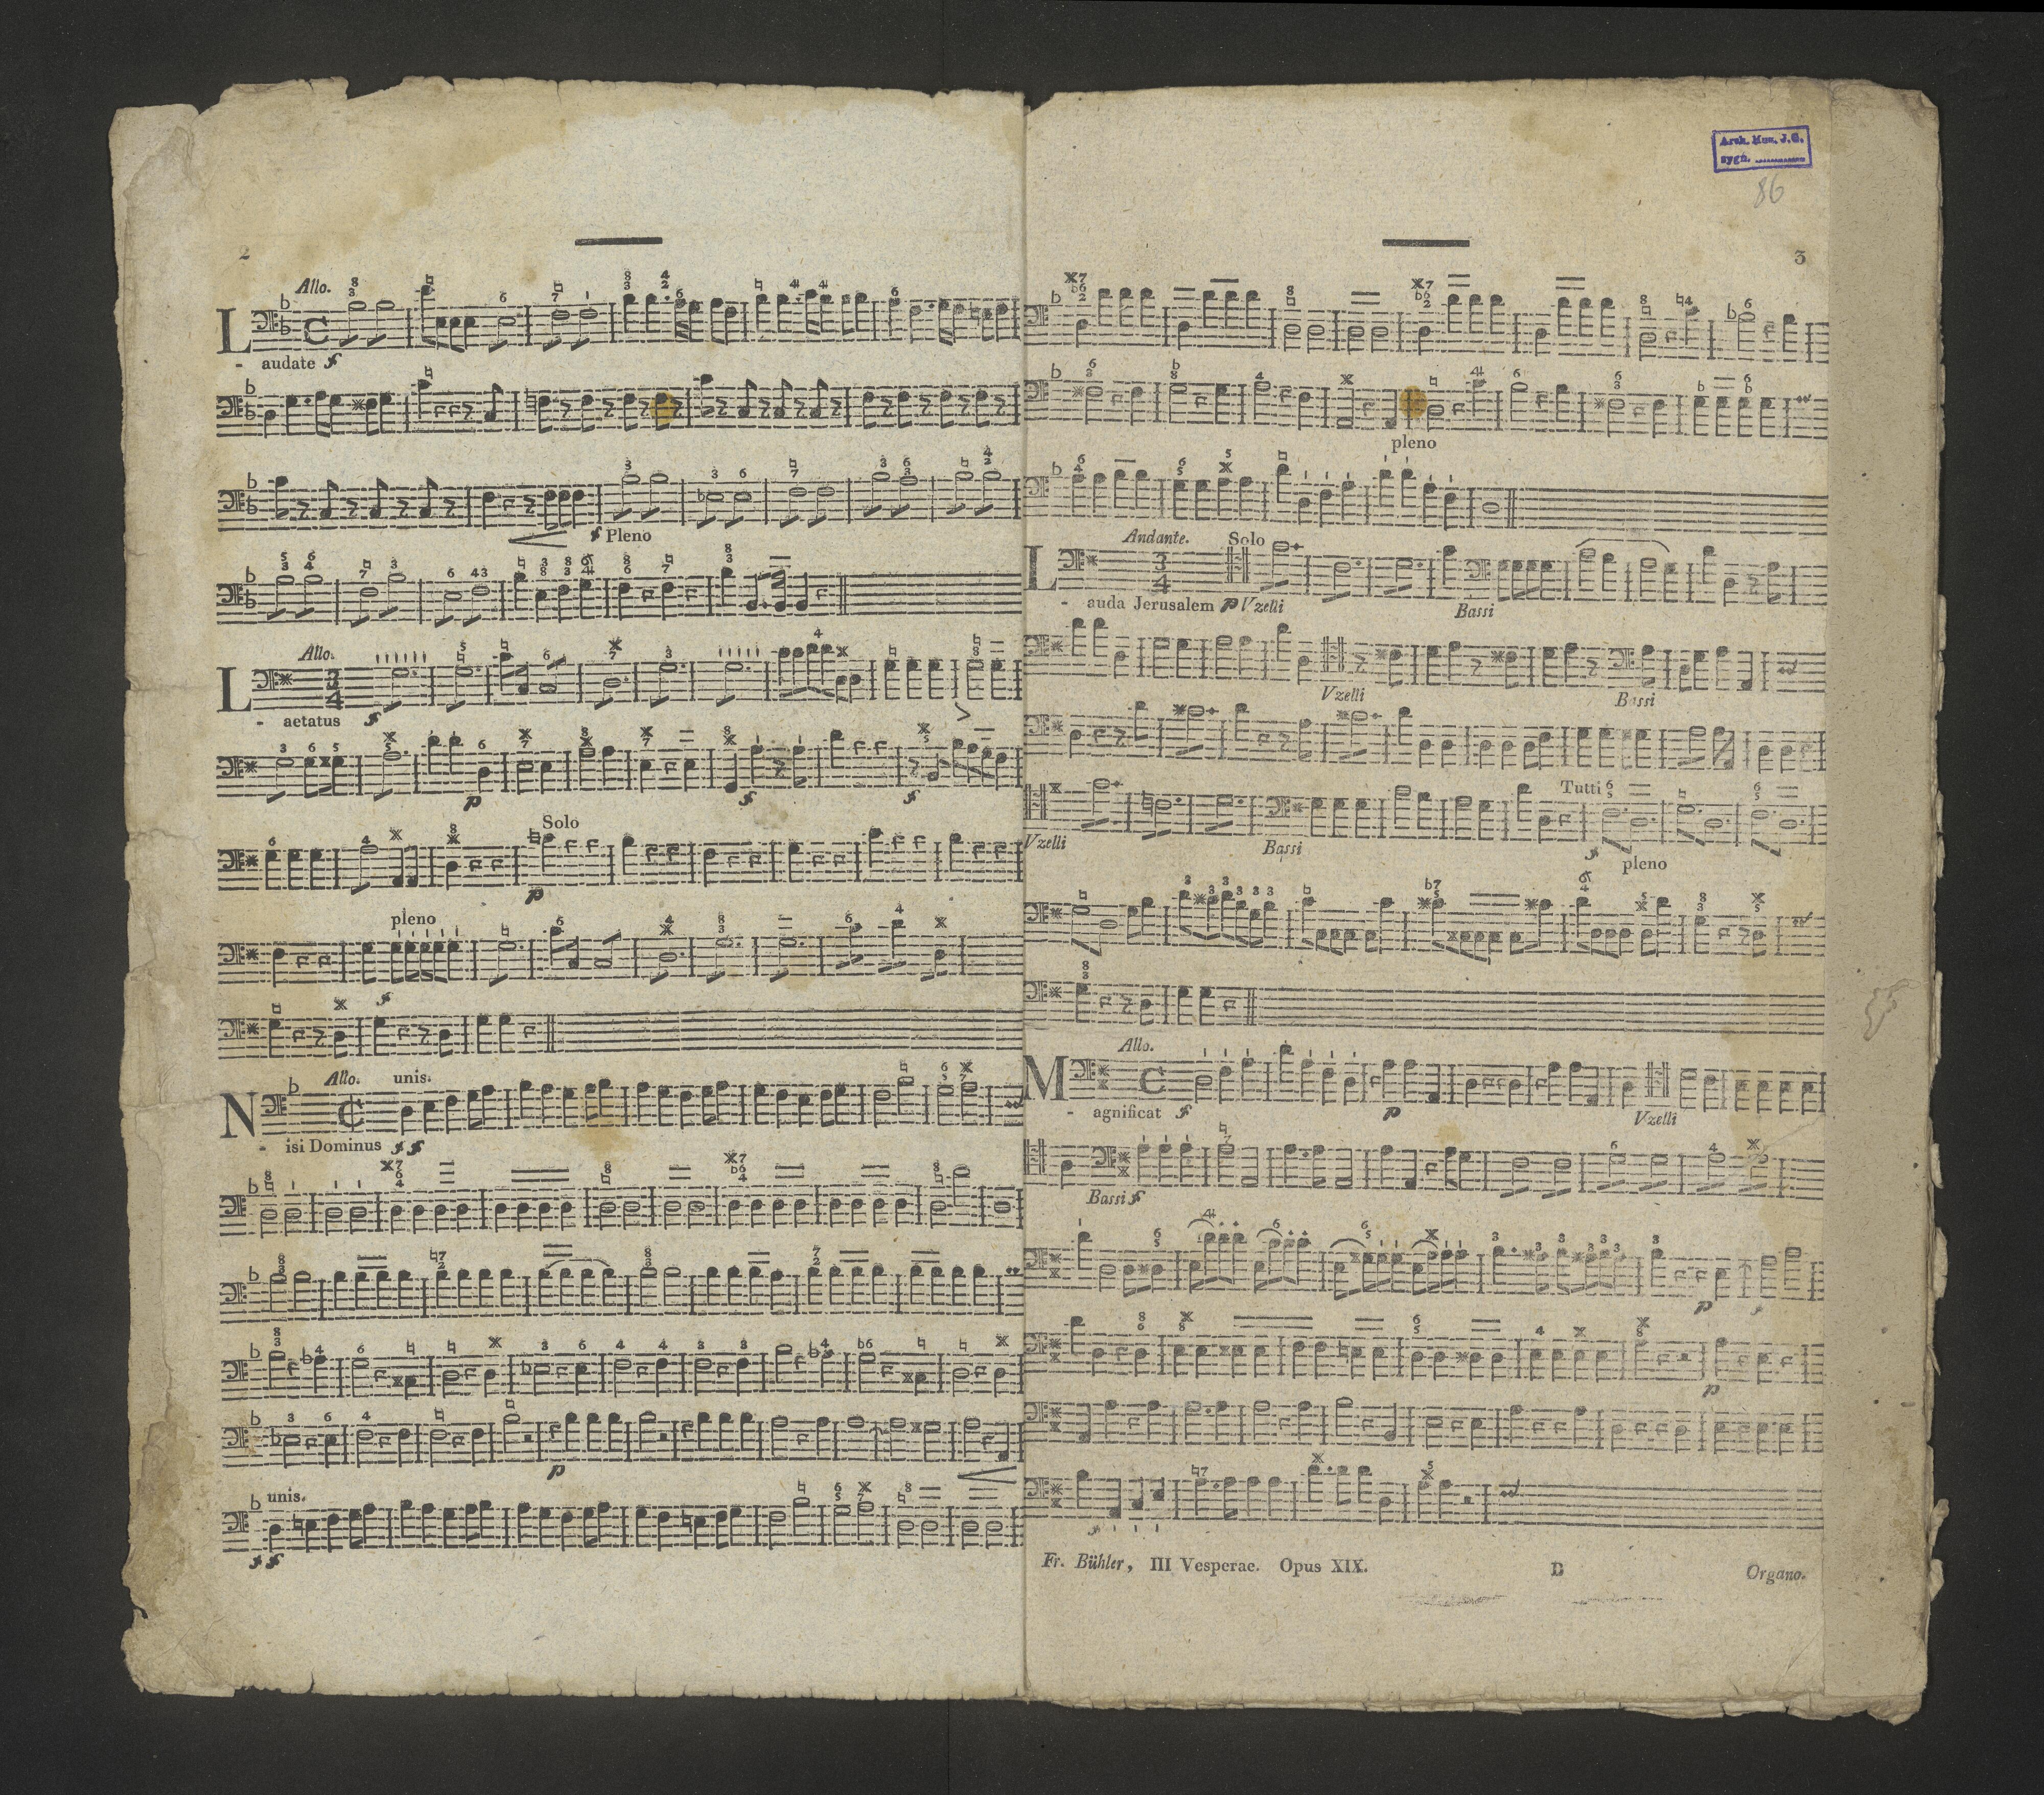 2
Allo.
L
- audate f
f Pleno
Allo.
L
- aetatus f
p
f
f
Solo
p
pleno
f
Allo. unis.
N
- isi Dominus ff
p
unis.
ff
Arch. Muz. J. G.
sygn. ............
86
3
pleno
Andante. Solo
L
- auda Jerusalem p Vzelli Bassi
Vzelli Bassi
Tutti
Vzelli Bassi f pleno
Allo.
M
- agnificat f p Vzelli
Bassi f
p f
p
f
Fr. Bühler, III Vesperae. Opus XIX. B Organo.